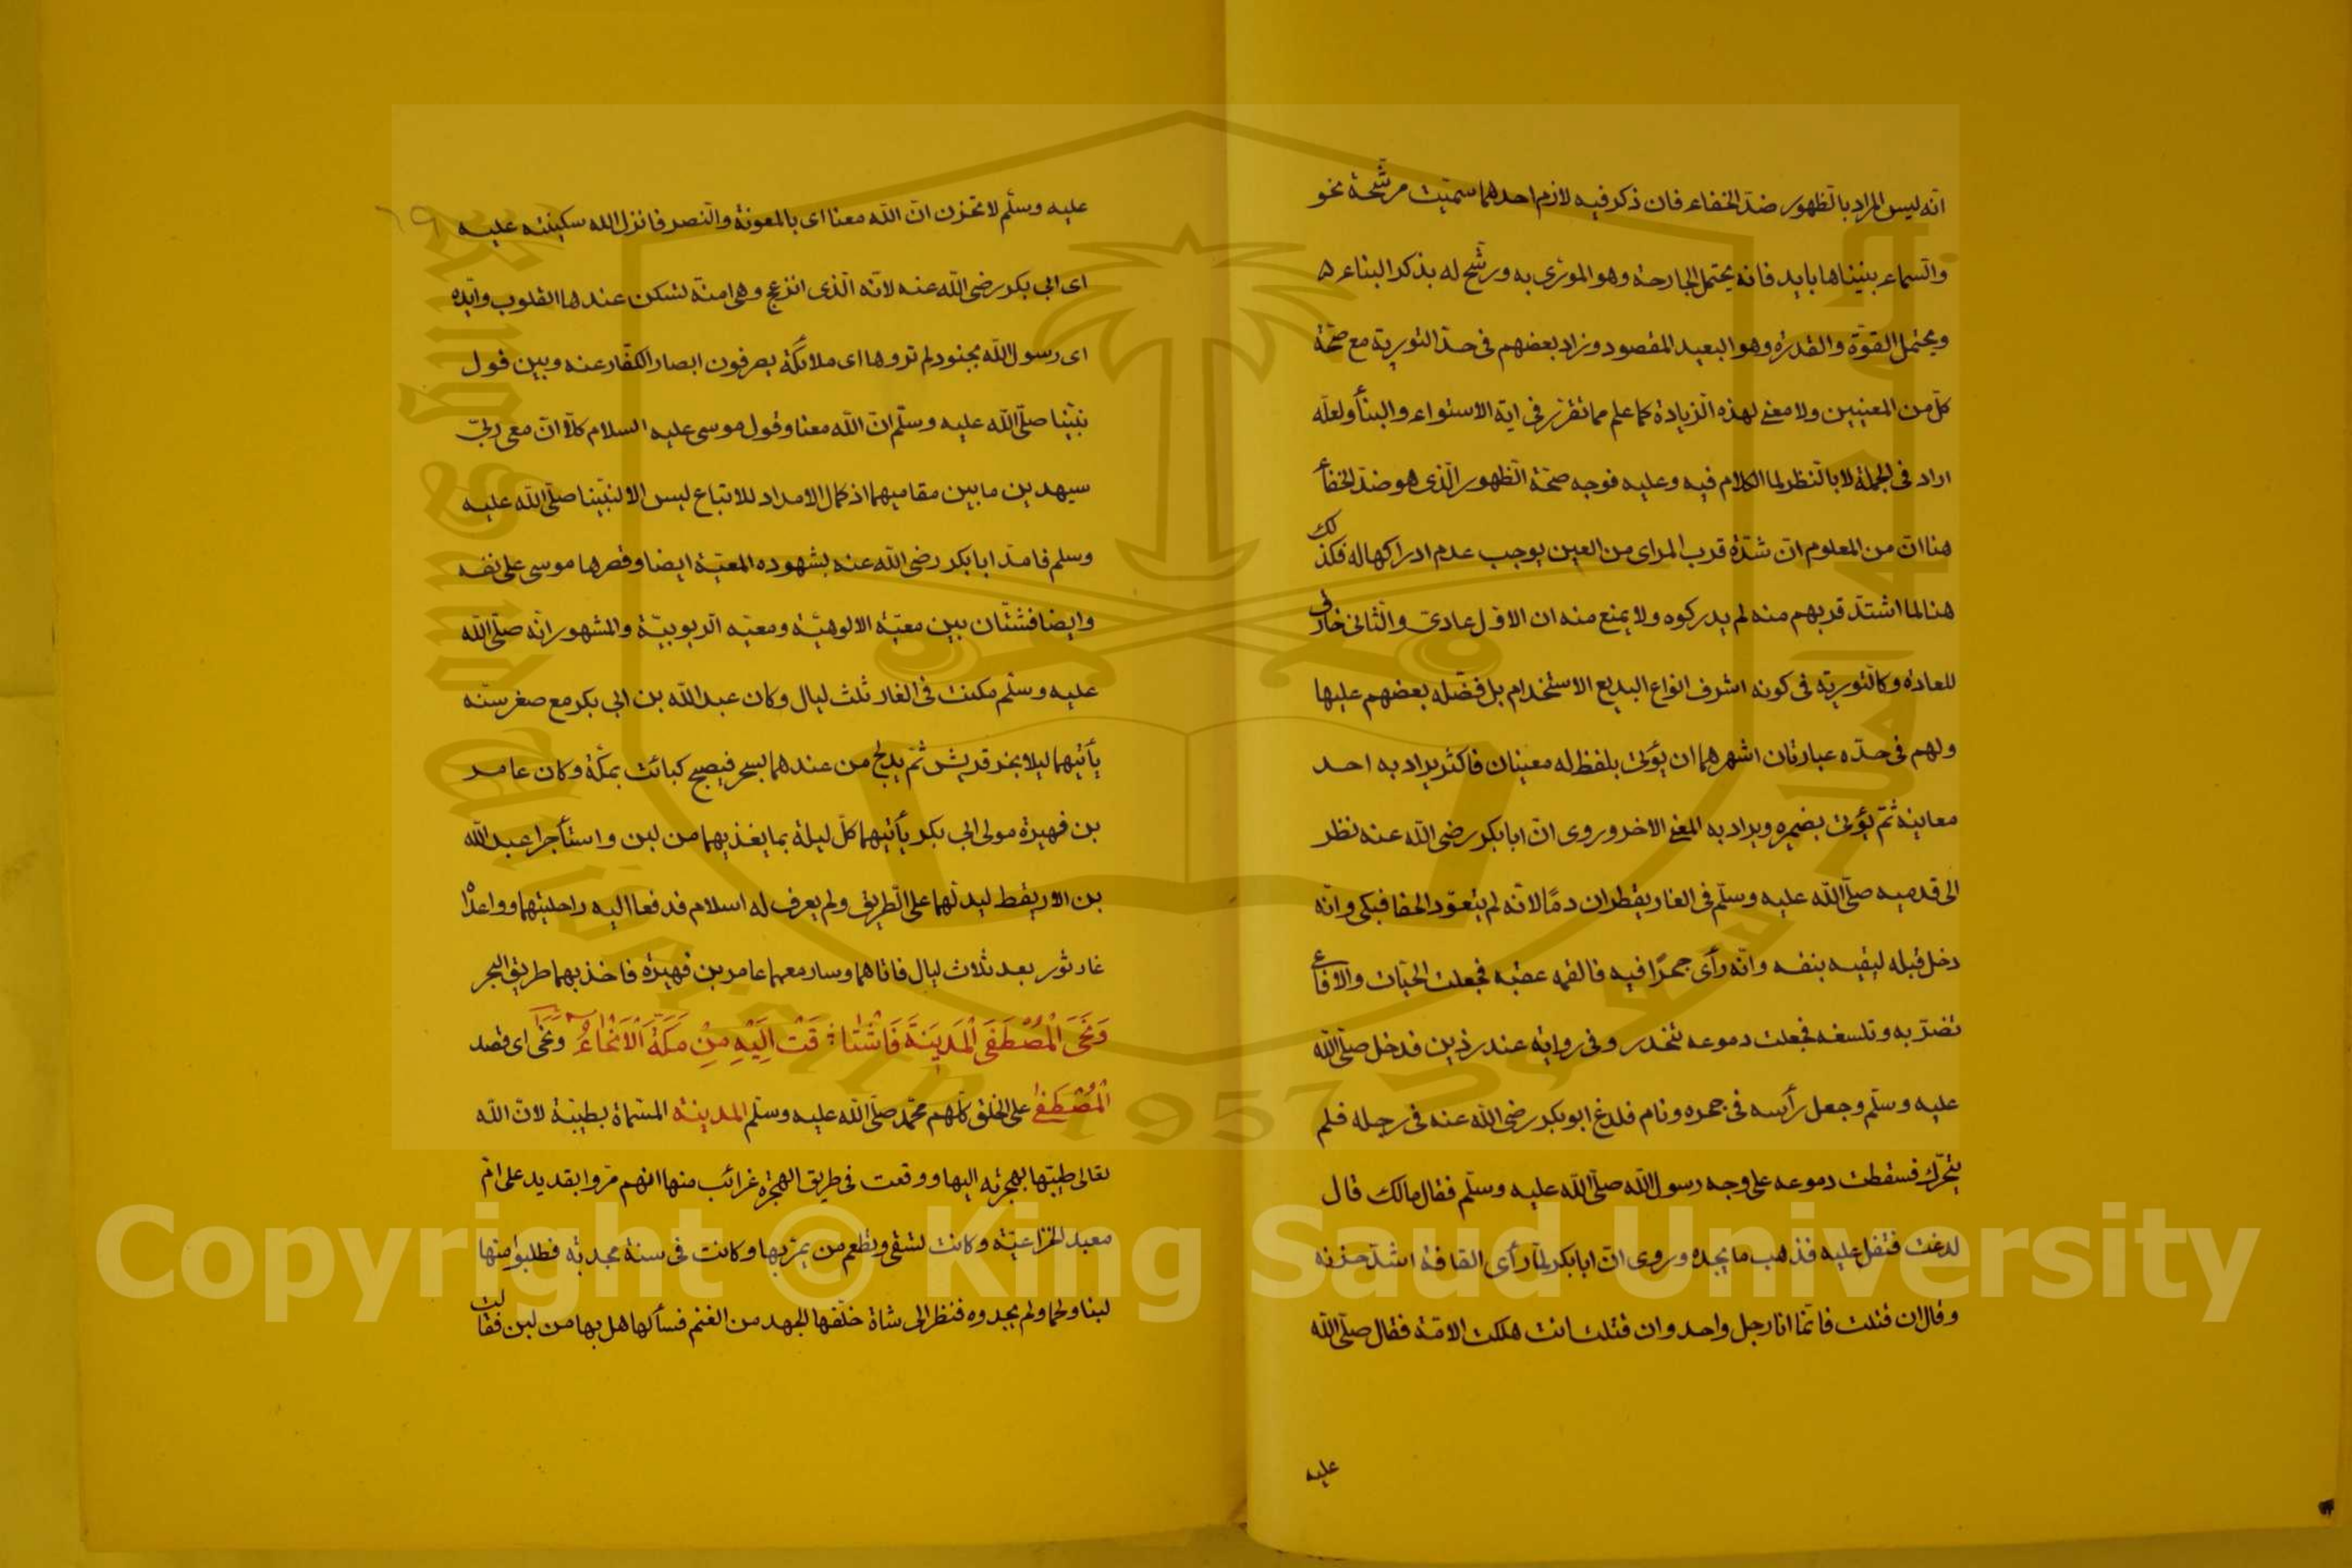 انه ليس المراد بالظهور ضد الخفاء فان ذكر فيه لازم احدهما سميت مرشحة نحو
والسماء بنيناها بايد فانه يحتمل الجارحة وهو المورى به ورشح له بذكر البناء
ويحتمل القوة والقدرة وهو البعيد المقصود وزاد بعضهم فى حد التورية مع صحة
كل من المعنيين ولا معنى لهذه الزيادة كما علم مما تقرر فى اية الاستواء والبنأ ولعله
اراد فى الجملة لا بالنظر لما الكلام فيه وعليه فوجه صحة الظهور الذى هو ضد الخفأ
هنا ان من المعلوم ان شدة قرب المراى من العين يوجب عدم ادراكها له فكذلك
هنا لما اشتد قربهم منه لم يدركوه ولا يمنع منه ان الاول عادى والثانى خارق
للعادة وكالتورية فى كونه اشرف انواع البديع الاستخدام بل فضله بعضهم عليها
ولهم فى حده عبارتان اشهرهما ان يؤتى بلفظ له معنيان فاكثر يراد به احد
معانيه ثم يؤتى بضميره ويراد به المعنى الاخر وروى ان ابا بكر رضى الله عنه نظر
الى قدميه صلى الله عليه وسلم فى الغار يقطران دمًا لانه لم يتعود الحفا فبكى وانه
دخل قبله ليقيه بنفسه وانه رأى جحرًا فيه فالقمه عقبه فجعلت الحيات والافاعى
تضربه وتلسعه فجعلت دموعه تنحدر وفى رواية عند رزين فدخل صلى الله
عليه وسلم وجعل رأسه فى حجره ونام فلدغ ابو بكر رضى الله عنه فى رجله فلم
يتحرك فسقطت دموعه على وجه رسول الله صلى الله عليه وسلم فقال مالك قال
لدغت فتفل عليه فذهب ما يجده وروى ان ابا بكر لما رأى القافة اشتد حزنه
وقال ان قتلت فانما انا رجل واحد وان قتلت انت هلكت الامة فقال صلى الله
عليه
٦٩
عليه وسلم لا تحزن ان الله معنا اى بالمعونة والنصر فانزل الله سكينته عليه
اى ابى بكر رضى الله عنه لانه الذى انزعج وهى امنة تسكن عندها القلوب وايده
اى رسول الله بجنود لم تروها اى ملائكة يصرفون ابصار الكفار عنه وبين قول
نبينا صلى الله عليه وسلم ان الله معنا وقول موسى عليه السلام كلا ان معى ربى
سيهدين ما بين مقاميهما اذ كمال الامداد للاتباع ليس الا لنبينا صلى الله عليه
وسلم فامد ابا بكر رضى الله عنه بشهوده المعية ايضا وقصرها موسى على نفسه
وايضا فشتان بين معية الالوهية ومعيه الربوبية والمشهور انه صلى الله
عليه وسلم مكث فى الغار ثلث ليال وكان عبد الله بن ابى بكر مع صغر سنه
يأتيهما ليلا بخبر قريش ثم يدلج من عندهما بسحر فيصبح كبائت بمكة وكان عامر
بن فهيرة مولى ابى بكر يأتيهما كل ليلة بما يغذيهما من لبن واستأجرا عبد الله
بن الاريقط ليدلهما على الطريق ولم يعرف له اسلام فدفعا اليه راحلتيهما وواعداه
غار ثور بعد ثلاث ليال فاتاهما وسار معهما عامر بن فهيرة فاخذ بهما طريق البحر
وَنَحَى الْمُصْطَفَى الْمَدِينَةَ فَاشْتَا؛ قَتْ اِلَيْهِ مِنْ مَكَّةَ الْاَنْحَاءُ ونحى اى قصد
الْمُصْطَفَى على الخلق كلهم محمد صلى الله عليه وسلم المدينة المسماة بطيبة لان الله
تعالى طيبها بهجرته اليها ووقعت فى طريق الهجرة غرائب منها انهم مروا بقديد على ام
معبد الخزاعية وكانت تسقى وتطعم من يمر بها وكانت فى سنة مجدبة فطلبوا منها
لبنا ولحما ولم يجدوه فنظر الى شاة خلفها الجهد من الغنم فسألها هل بها من لبن فقالت
King Saud University
جامعة الملك سعود
1957
Copyright © King Saud University